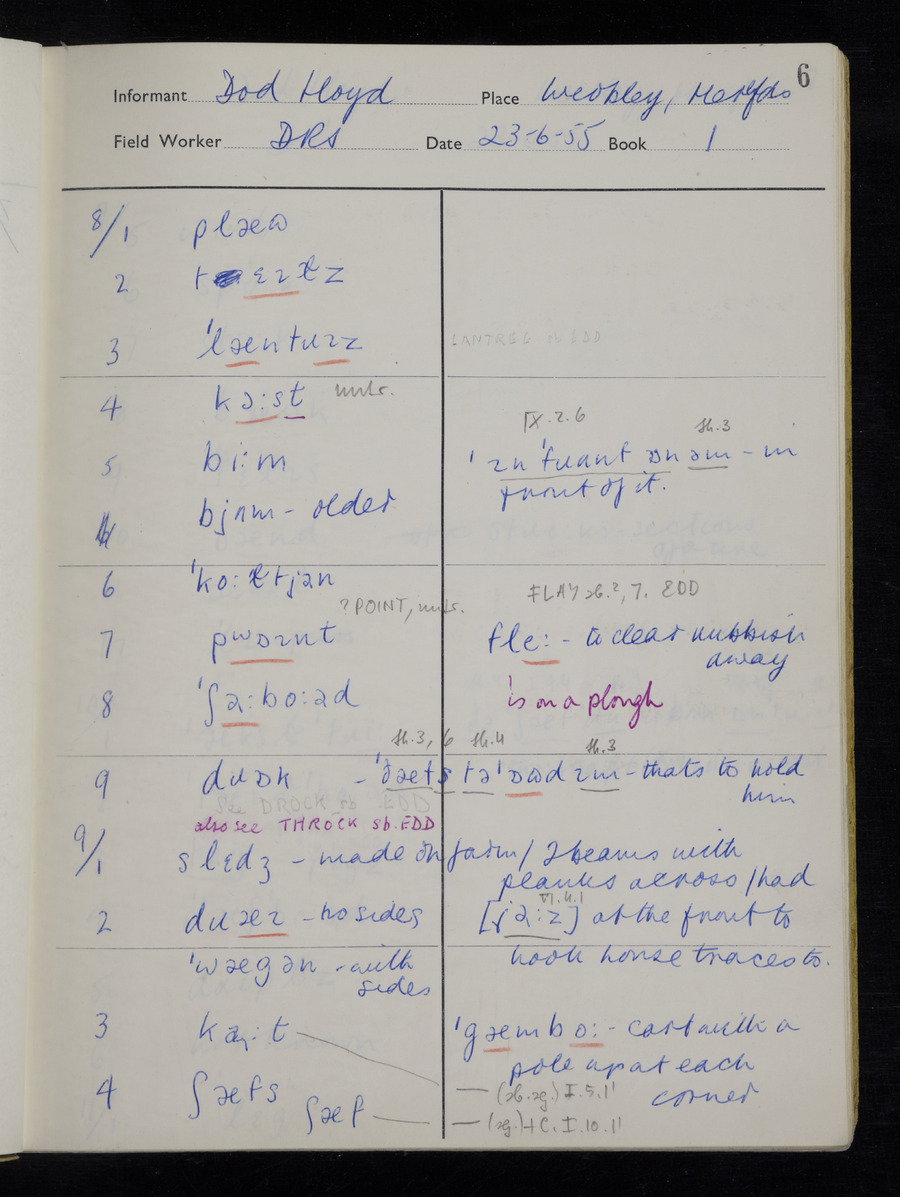 6
Informant Dod Lloyd Place Weobley, Herefds
Field Worker DRS Date 23-6-55 Book 1
8/1 plæʊ
2
3 'læntɹ̩z LANTREE sb EDD
4 kɔ:st
IX.2.6
sh.3
5 bi:m - in
bjɪm - older front of it.
6 'ko:ɫtjən
? POINT, FLAY sb.², 7. EDD
7 pwɒɪnt fle: - to clear rubbish
away
8 'ʃa:bo:əd 'is on a plough
sh.3, 6 sh.4 sh.3
9 dɹɒk - 'ðæts tə 'ɒʊd ɪm - thats to hold
him
See DROCK sb .EDD
also see THROCK sb.EDD
9/1 slɛdʒ - made on farm / 2 beams with
planks across / had
VI.4.1
2 dɹæɪ - no sides [j ɑ:z] at the front to
hook horse traces to.
'wægən - with
sides
3 ka:t 'gæmbo: - cart with a
pole up at each
corner
— (sb.sg.) I.5.1'
4 ʃæfs
ʃæf — (sg.)+C. I.10.1'